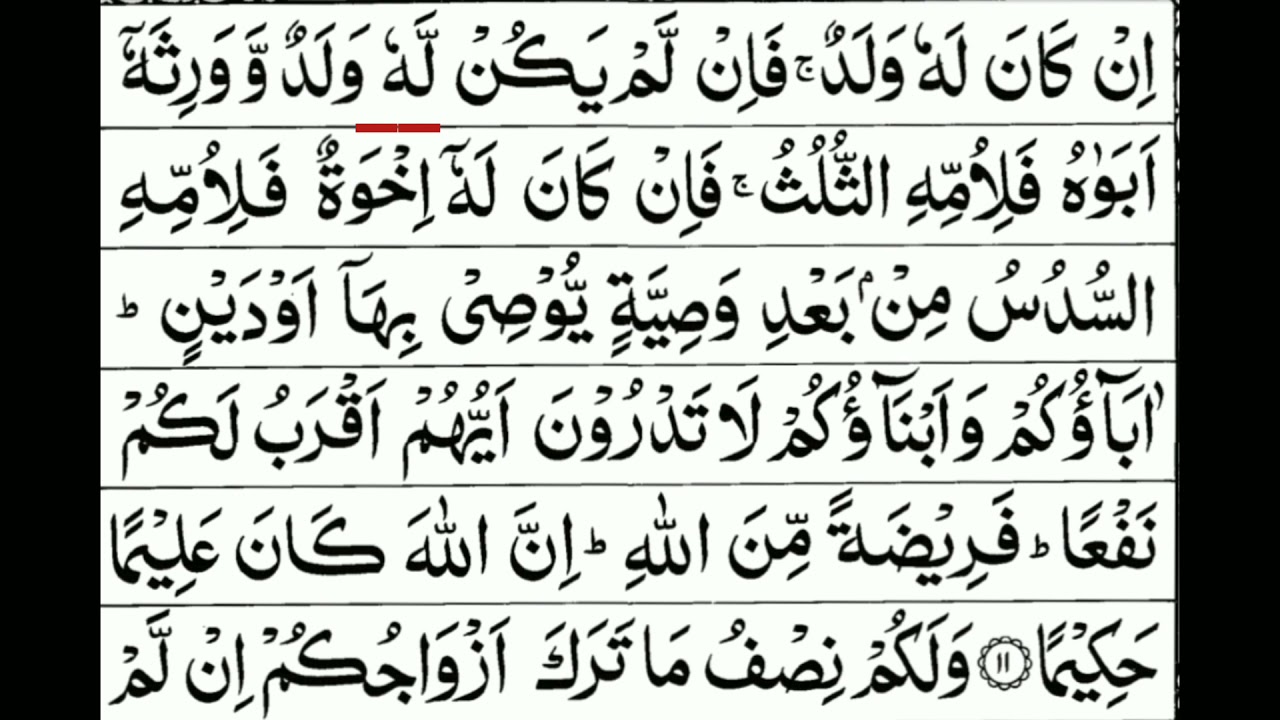 اِنْ كَانَ لَهٗ وَلَدٌ ۚ فَاِنْ لَّمْ يَكُنْ لَّهٗ وَلَدٌ وَّ وَرِثَهٗۤ
اَبَوٰهُ فَلِاُمِّهِ الثُّلُثُ ۚ فَاِنْ كَانَ لَهٗۤ اِخْوَةٌ فَلِاُمِّهِ
السُّدُسُ مِنْۢ بَعْدِ وَصِيَّةٍ يُّوْصِىْ بِهَاۤ اَوْ دَيْنٍ ؕ
اٰبَآؤُكُمْ وَ اَبْنَآؤُكُمْ لَا تَدْرُوْنَ اَيُّهُمْ اَقْرَبُ لَكُمْ
نَفْعًا ؕ فَرِيْضَةً مِّنَ اللّٰهِ ؕ اِنَّ اللّٰهَ كَانَ عَلِيْمًا
حَكِيْمًا ۝۱۱ وَلَكُمْ نِصْفُ مَا تَرَكَ اَزْوَاجُكُمْ اِنْ لَّمْ